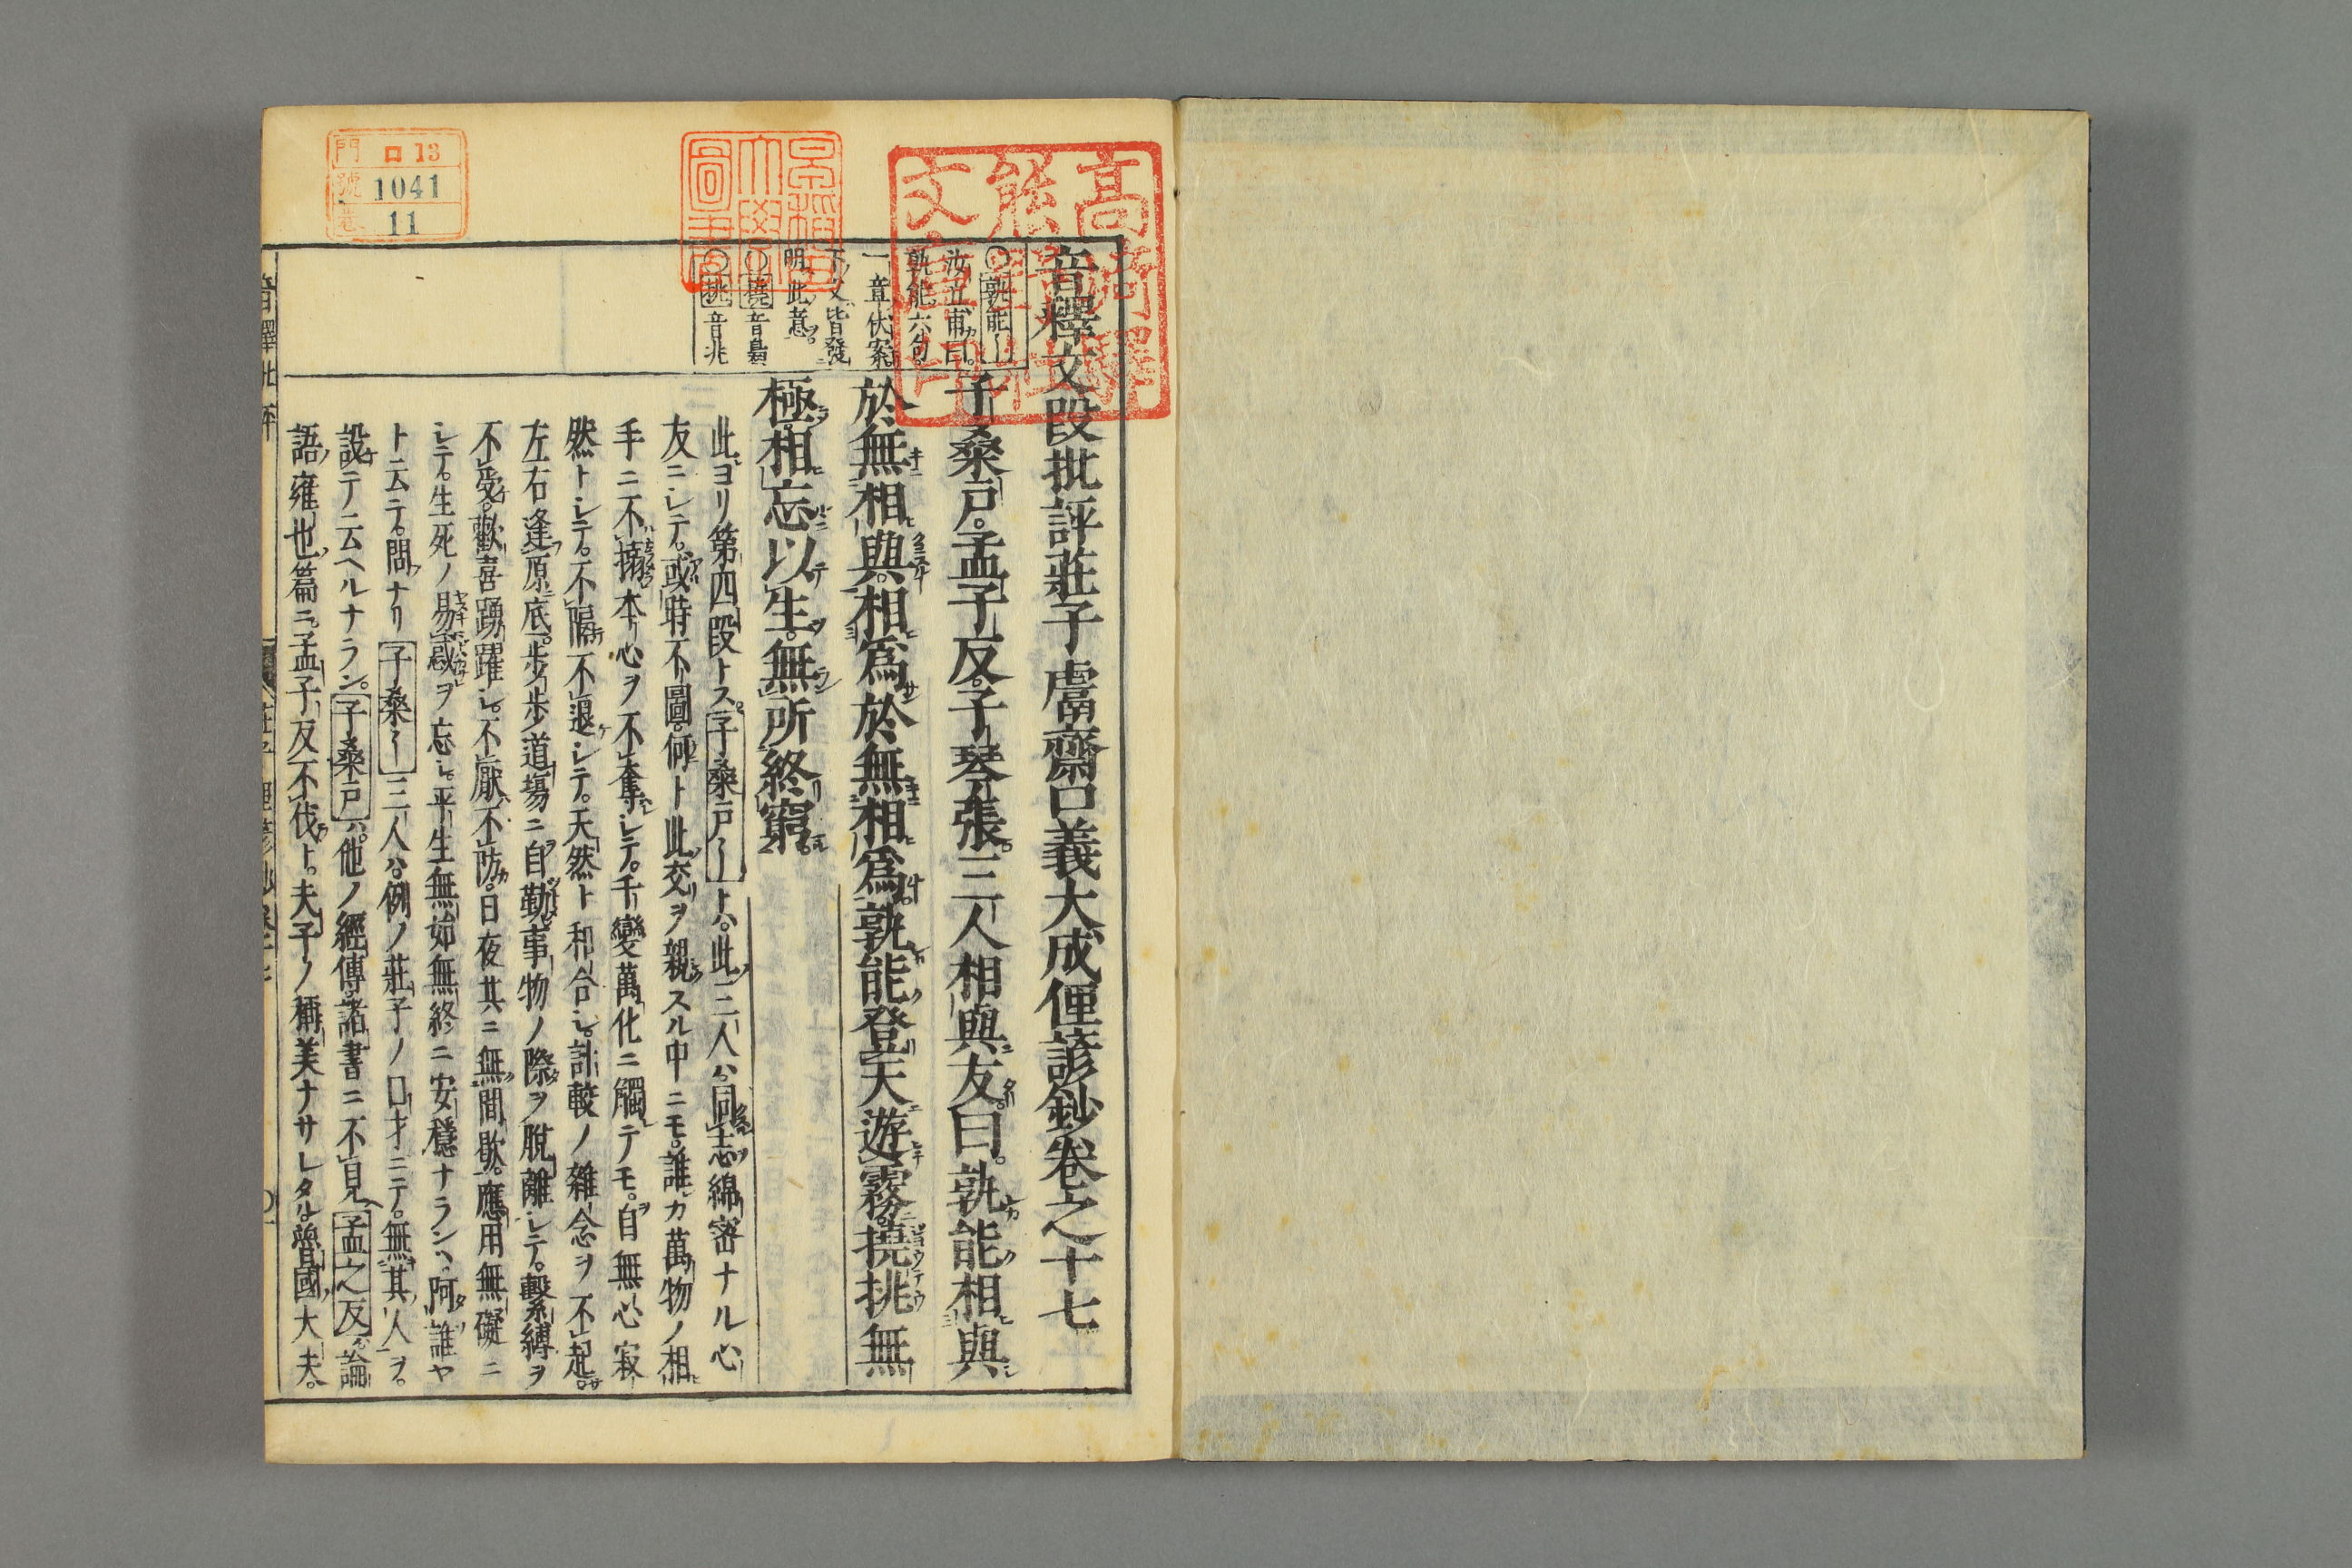 音釋文段批評莊子鬳齋口義大成俚諺鈔卷之十七
子桑戸。孟子反。子琴張三人相與友曰。孰能相與
於無相與。相爲於無相爲。孰能登天遊霧。撓挑無
極。相忘以生。無所終窮。
此ヨリ第四段トス。子桑戸〱トハ。此三人ハ。同志綿密ナル心
友ニシテ。或時不圖。何ト此交ヲ親スル中ニモ。誰カ萬物ノ相
手ニ不搦。本心ヲ不奪シテ。千變萬化ニ觸テモ。自無心寂
然トシテ。不隔不退シテ。天然ト和合シ。計較ノ雜念ヲ不起。
左右逢原底。歩歩道塲ニ自勤。事物ノ際ヲ脫離シテ。繫縛ヲ
不受。歡喜踴躍シ。不厭不防。日夜其ニ無間歇。應用無礙ニ
シテ。生死ノ易慼ヲ忘シ。平生無始無終ニ安穩ナランハ。阿誰ヤ
ト云テ。問ナリ子桑〱三人ハ。例ノ莊子ノ口才ニテ。無其人ヲ。
設テ云ヘルナラン。子桑戸ハ。他ノ經傳諸書ニ不見。孟之反ハ。論
語雍也篇ニ。孟子反不伐ト。夫子ノ稱美ナサレタル。魯國大夫。
○孰能〱
汝立甫曰。
孰能六句
一章伏案。
下文皆發
明此意。
○撓音裊
○挑音兆
門 ロ13
號 1041
卷 11